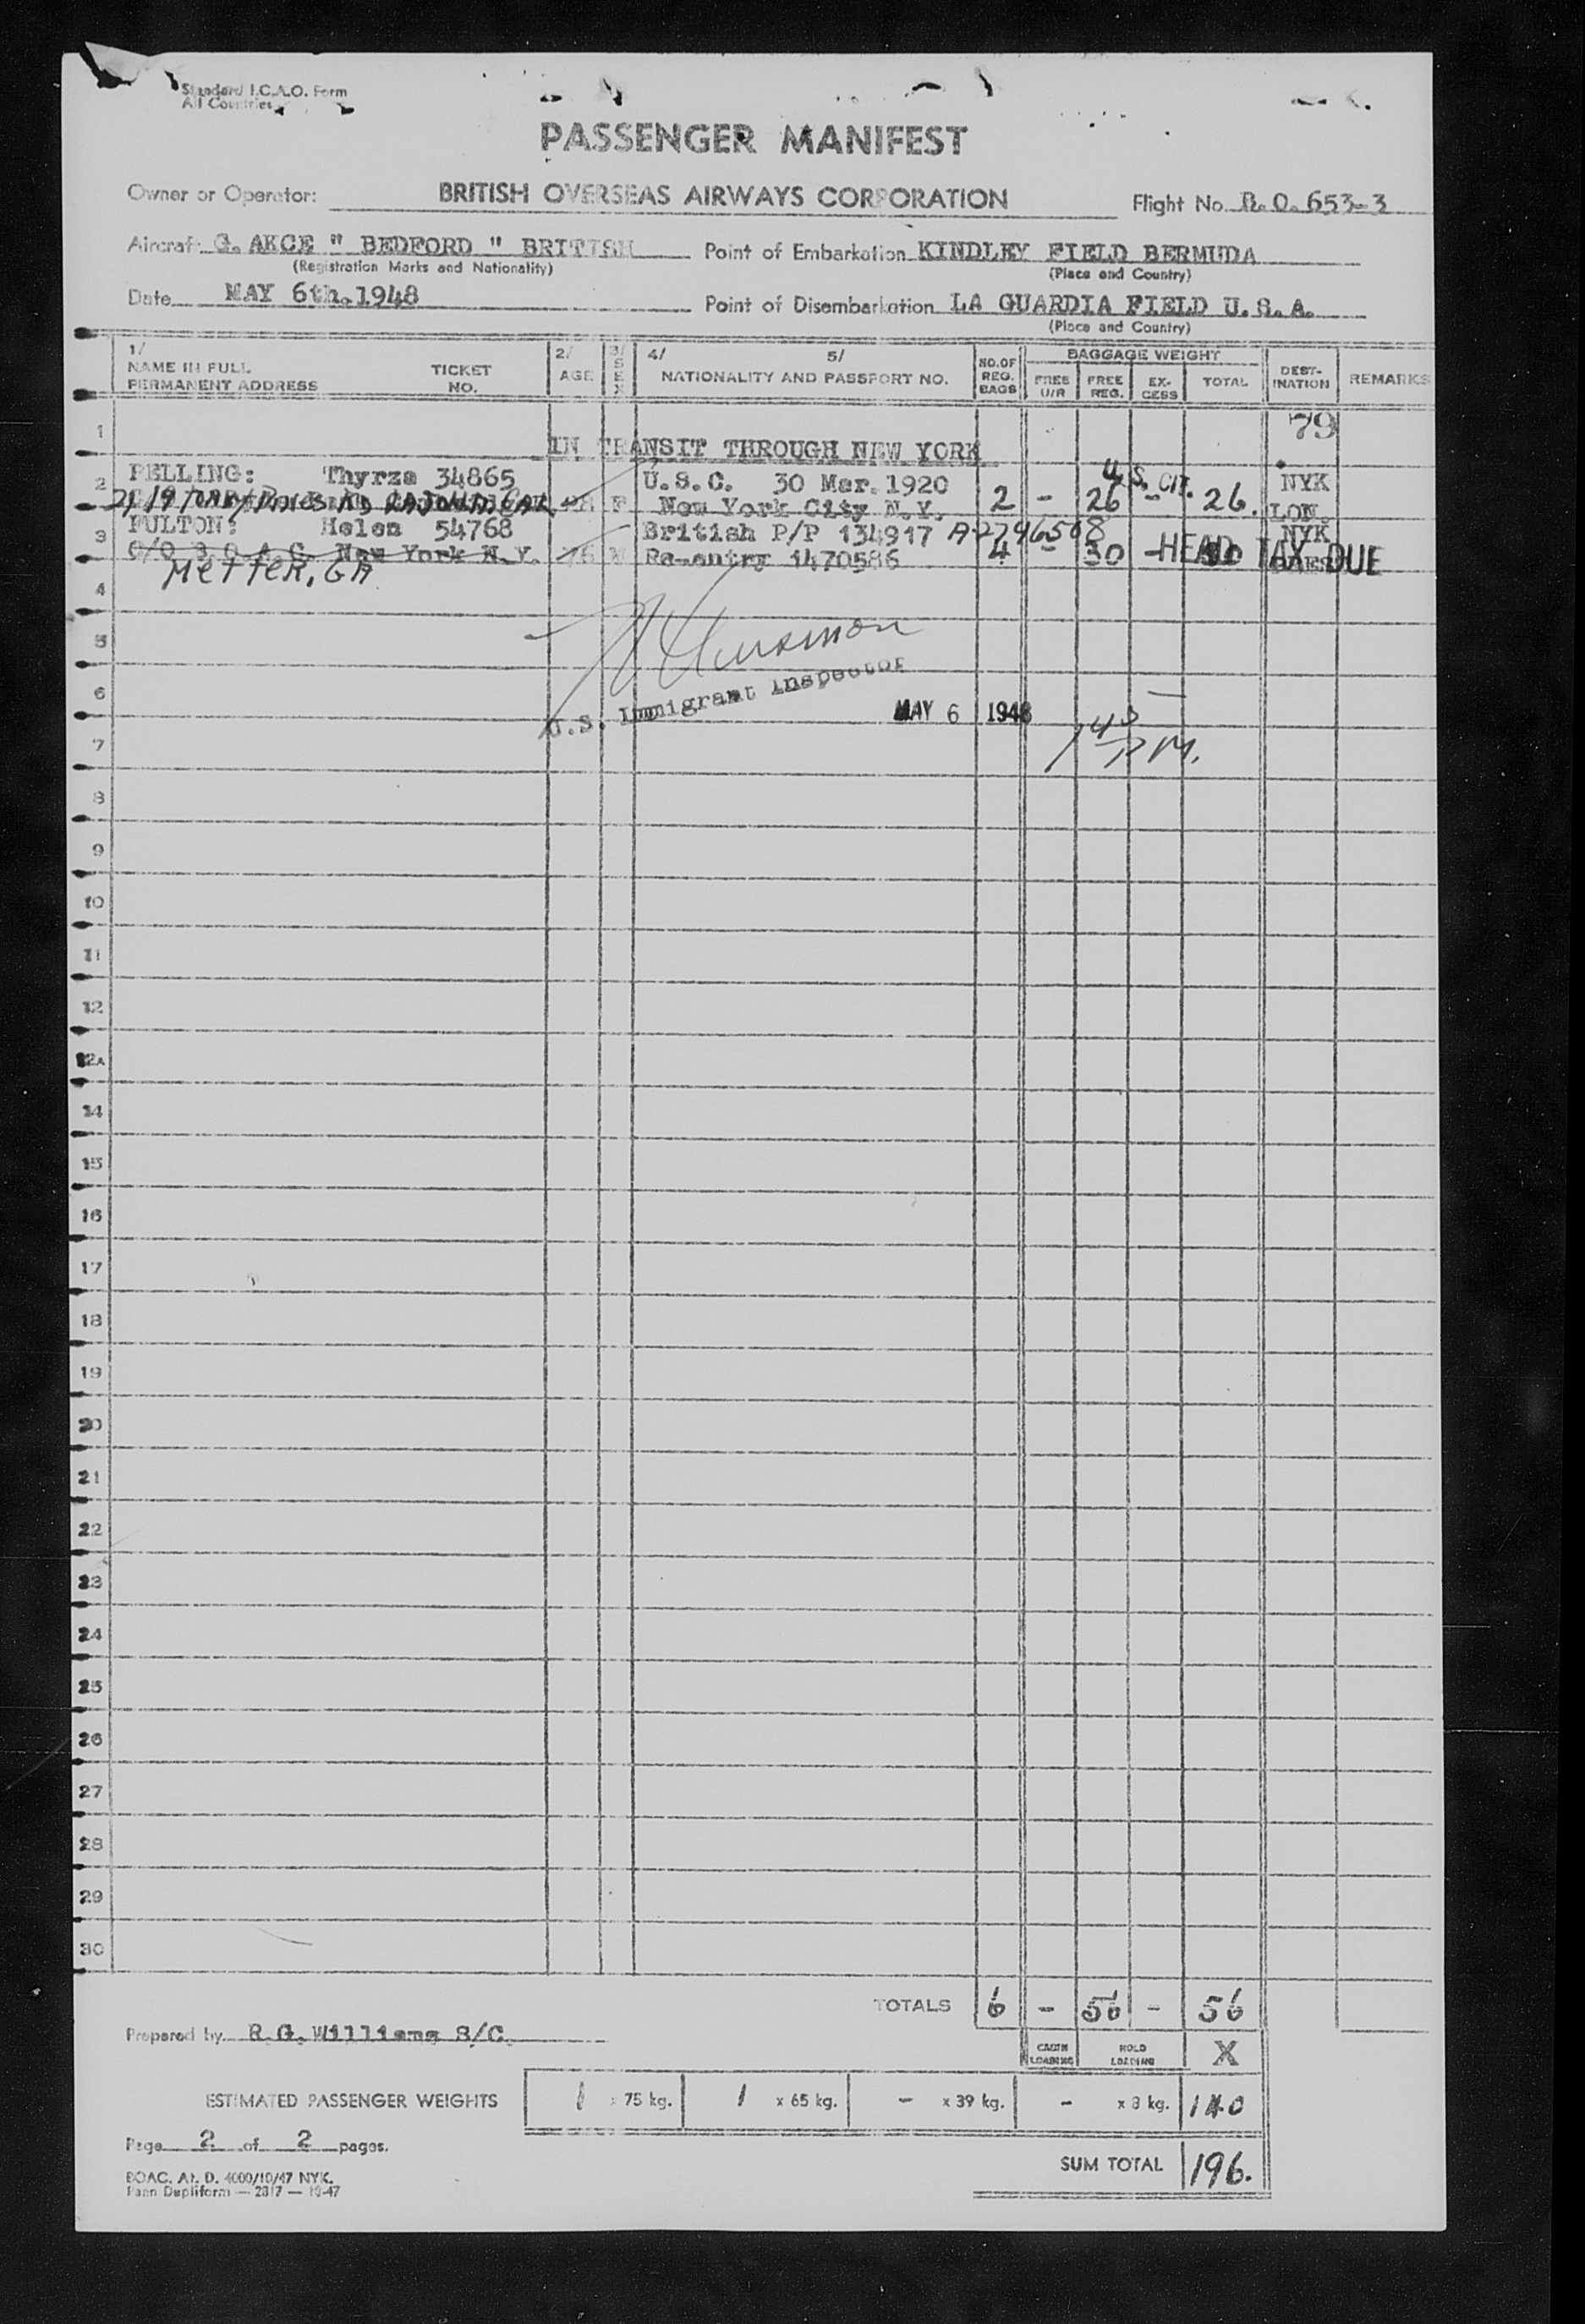 Standard I.C.A.O. Form
All Countries
PASSENGER MANIFEST
Owner or Operator: BRITISH OVERSEAS AIRWAYS CORPORATION Flight No. B.O. 653-3
Aircraft G. AKCE " BEDFORD " BRITISH Point of Embarkation KINDLEY FIELD BERMUDA
(Registration Marks and Nationality) (Place and Country)
Date MAY 6th.1948 Point of Disembarkation LA GUARDIA FIELD U.S.A.
(Place and Country)
1/ NAME IN FULL PERMANENT ADDRESS TICKET NO. 2/ AGE 3/ SEX 4/ 5/ NATIONALITY AND PASSPORT NO. NO.OF REG. BAGS BAGGAGE WEIGHT FREE U/R FREE REG. EX-CESS TOTAL DEST-INATION REMARKS
79
1 IN TRANSIT THROUGH NEW YORK
2 PELLING: Thyrza 34865 U.S.C. 30 Mar.1920 U.S. CIT. NYK
28 F New York City N.Y. 2 - 26 - 26. LON.
3 FULTON: Helen 54768 British P/P 134917 A-2796508 NYK
C/O B.O.A.C. New York N.Y. 76 Re-entry 1470586 4 - 30 - HEAD TAX DUE
Metter, GA
4
5
6
U.S. Immigrant Inspector
MAY 6 1948
1 45 P.M.
7
8
9
10
11
12
12A
14
15
16
17
18
19
20
21
22
23
24
25
26
27
28
29
30
TOTALS 6 - 56 - 56
Prepared by R.G.Williams S/C.
CABIN LOADING HOLD LOADING X
ESTIMATED PASSENGER WEIGHTS 1 x 75 kg. 1 x 65 kg. - x 39 kg. - x 8 kg. 140
Page 2 of 2 pages.
SUM TOTAL 196.
BOAC. At. D. 4000/10/47 NYK.
Pann Dupliform — 2817 — 10-47